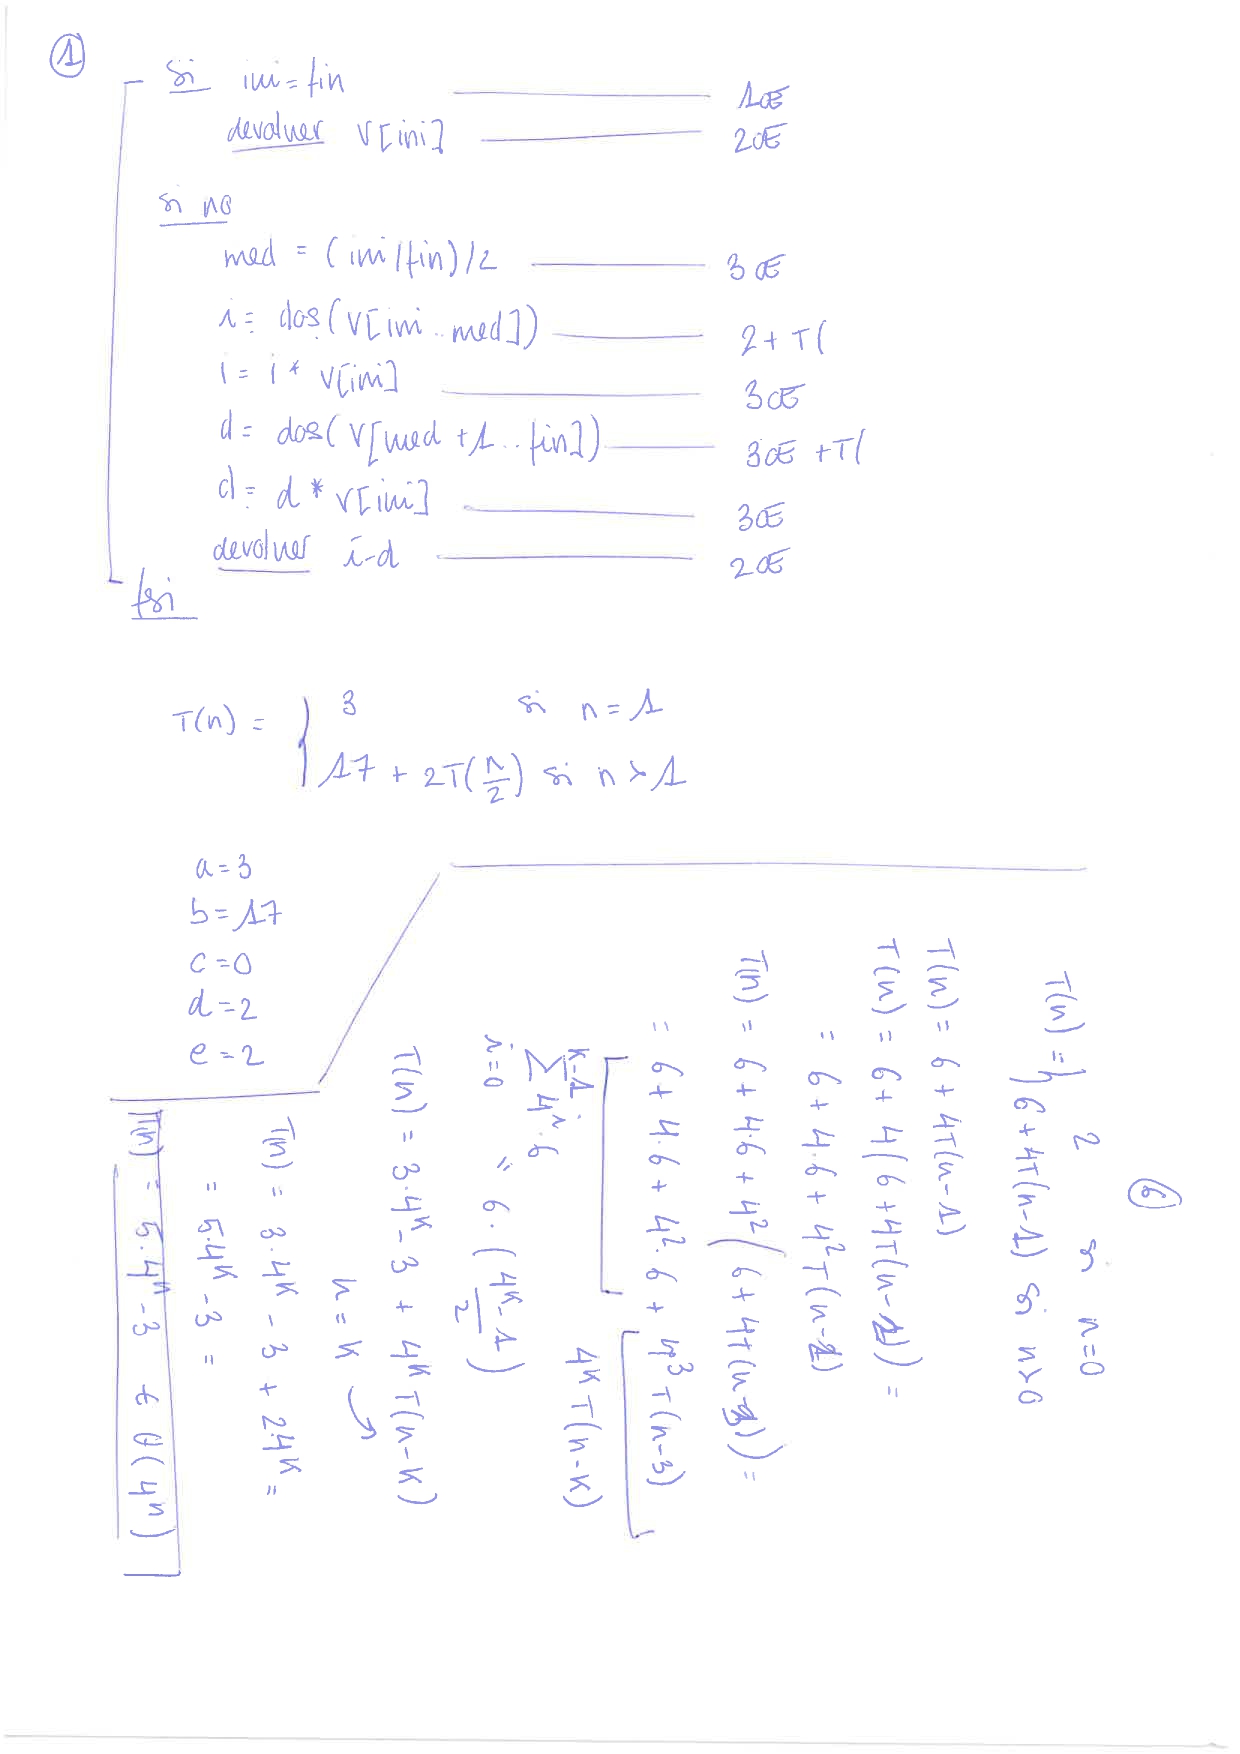 1
si ini = fin 1 OE
devolver v[ini] 2 OE
si no
med = (ini/fin)/2 3 OE
i = dos(v[ini..med]) 2 + T(
i = i * v[ini] 3 OE
d = dos(v[med+1..fin]) 3 OE + T(
d = d * v[ini] 3 OE
devolver i-d 2 OE
fsi
T(n) = { 3 si n = 1
17 + 2T(n/2) si n > 1
a = 3
b = 17
c = 0
d = 2
e = 2
6
T(n) = { 2 si n=0
6 + 4T(n-1) si n>0
T(n) = 6 + 4T(n-1)
T(n) = 6 + 4(6 + 4T(n-2)) =
= 6 + 4·6 + 4² T(n-2)
T(n) = 6 + 4·6 + 4² (6 + 4T(n-3)) =
= 6 + 4·6 + 4²·6 + 4³ T(n-3)
4^k T(n-k)
∑_{i=0}^{k-1} 4^i · 6 = 6 · (4^k - 1 / 2)
T(n) = 3·4^k - 3 + 4^k T(n-k)
n = k
T(n) = 3·4^k - 3 + 2·4^k =
= 5·4^k - 3 =
T(n) = 5·4^n - 3 ∈ θ(4^n)